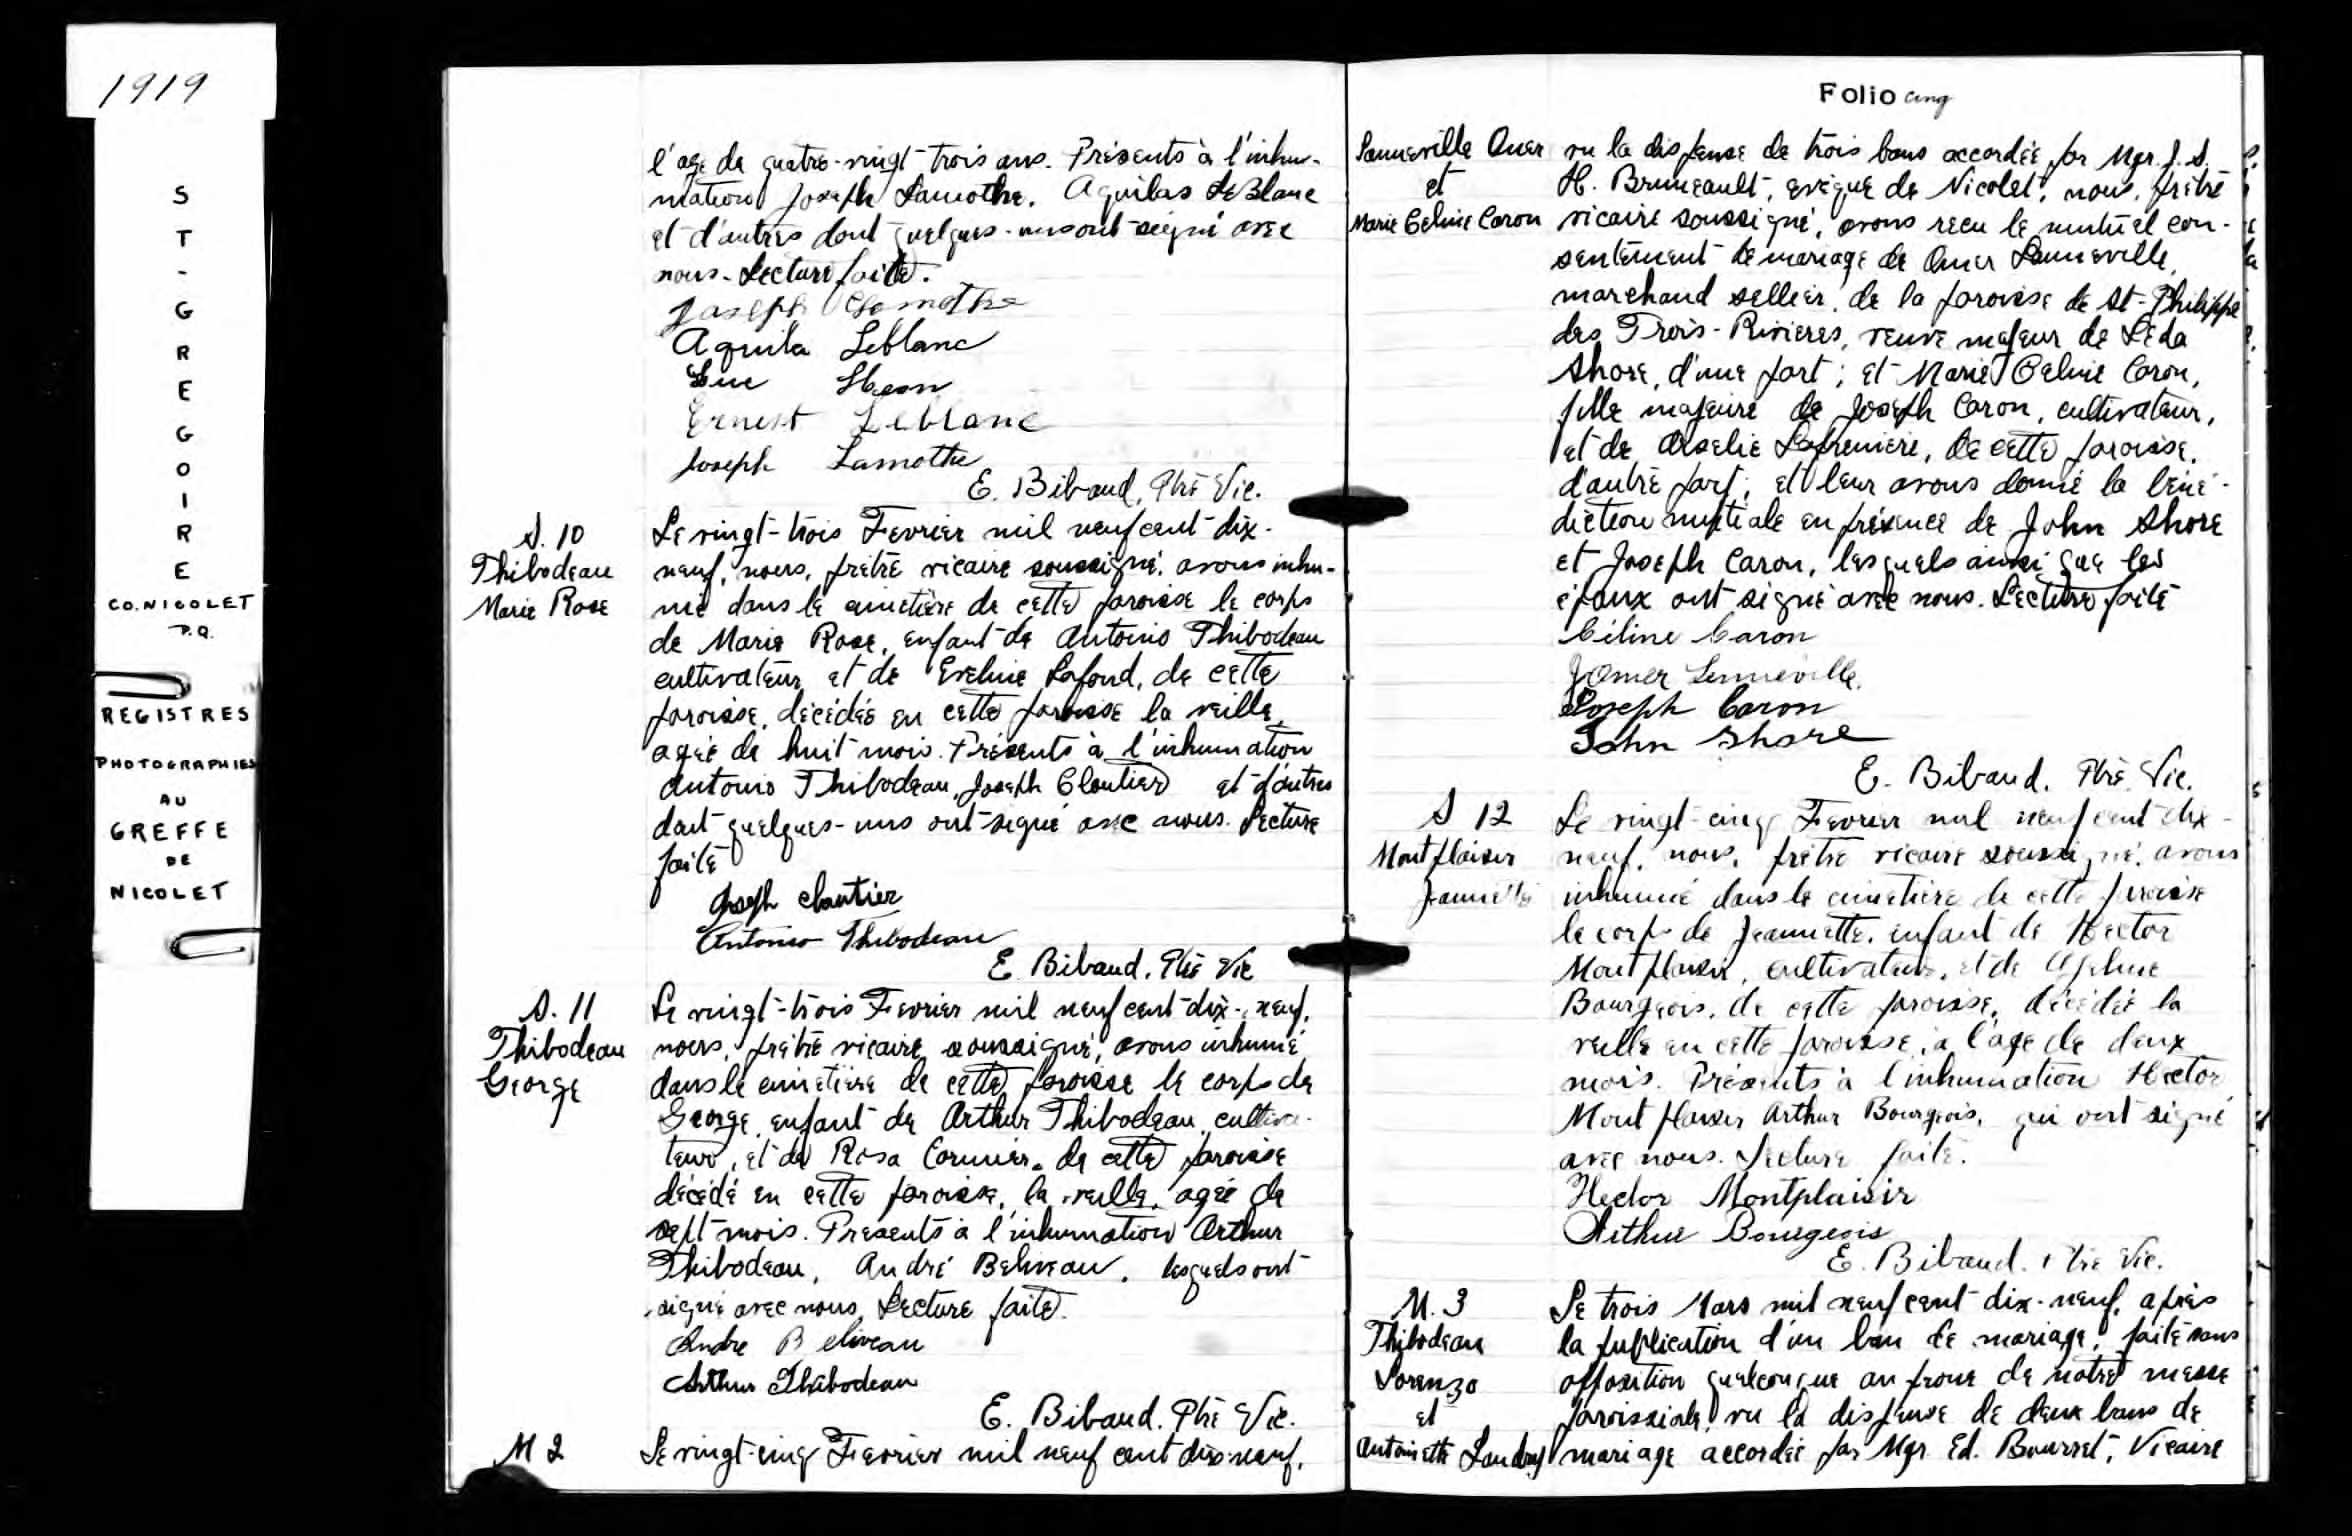 1919
ST-GREGOIRE
CO. NICOLET
P.Q.
REGISTRES
PHOTOGRAPHIES
AU
GREFFE
DE
NICOLET
l'age de quatre-vingt-trois ans. Présents à l'inhu-
mation Joseph Lamothe, Aquilas LeBlanc
et d'autres dont quelques-uns ont signé avec
nous. Lecture faite.
Joseph Lamothe
Aquila Leblanc
Luc
Ernest Leblanc
Joseph Lamothe
E. Bibaud, Ptre Vic.
S. 10
Thibodeau
Marie Rose
Le vingt-trois Fevrier mil neuf cent dix-
neuf, nous, prêtre vicaire soussigné, avons inhu-
mé dans le cimetière de cette paroisse le corps
de Marie Rose, enfant de Antonio Thibodeau
cultivateur et de Eveline Lafond, de cette
paroisse, décédée en cette paroisse la veille,
agée de huit mois. Présents à l'inhumation
Antonio Thibodeau, Joseph Cloutier et d'autres
dont quelques-uns ont signé avec nous. Lecture
faite
Joseph cloutier
Antonio Thibodeau
E. Bibaud, Ptre Vic
S. 11
Thibodeau
George
Le vingt-trois Fevrier mil neuf cent dix-neuf,
nous, prêtre vicaire soussigné, avons inhumé
dans le cimetière de cette paroisse le corps de
George, enfant de Arthur Thibodeau, cultiva-
teur, et de Rosa Cormier, de cette paroisse
décédé en cette paroisse, la veille, agée de
sept mois. Presents à l'inhumation Arthur
Thibodeau, André Beliveau, lesquels ont
signé avec nous, Lecture faite.
Andre Beliveau
Arthur Thibodeau
E. Bibaud. Ptre Vic.
M 2
Le vingt-cinq Fevrier mil neuf cent dix-neuf,
Folio cinq
Lanneville Omer
et
Marie Celine Caron
vu la dispense de trois bans accordée par Mgr. J. S.
H. Bruneault, evêque de Nicolet, nous, prêtre
vicaire soussigné, avons recu le mutuel con-
sentement de mariage de Omer Lanneville,
marchand sellier, de la paroisse de St-Philippe
des Trois-Rivieres, veuve majeur de Léda
Shore, d'une part; et Marie Celine Caron,
fille majeure de Joseph Caron, cultivateur,
et de Lafreniere, de cette paroisse,
d'autre part; et leur avons donné la béné-
diction nuptiale en présence de John Shore
et Joseph Caron, lesquels ainsi que les
époux ont signé avec nous. Lecture faite
Céline Caron
J Omer Lenneville.
Joseph Caron
John Shore
E. Bibaud. Ptre. Vic.
S 12
Montplaisir
Jeannette
Le vingt-cinq Fevrier mil neuf cent dix-
neuf, nous, prêtre vicaire soussigné, avons
inhumé dans le cimetière de cette paroisse
le corps de Jeannette, enfant de Hector
Montplaisir, cultivateur, et de
Bourgeois, de cette paroisse, décédée la
veille en cette paroisse, à l'age de deux
mois. Présents à l'inhumation Hector
Montplaisir Arthur Bourgeois, qui ont signé
avec nous. Lecture faite.
Hector Montplaisir
Arthur Bourgeois
E. Bibaud. Ptre Vic.
M. 3
Thibodeau
Lorenzo
et
Antoinette Landry
Le trois Mars mil neuf cent dix-neuf, après
la publication d'un ban de mariage, faite sans
opposition quelconque au prone de notre messe
paroissiale, vu la dispense de deux bans de
mariage accordée par Mgr. Ed. Bourret, Vicaire